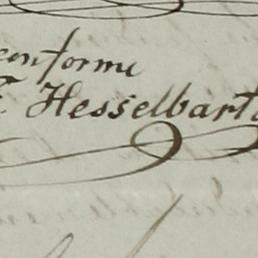 conforme
Hesselbart